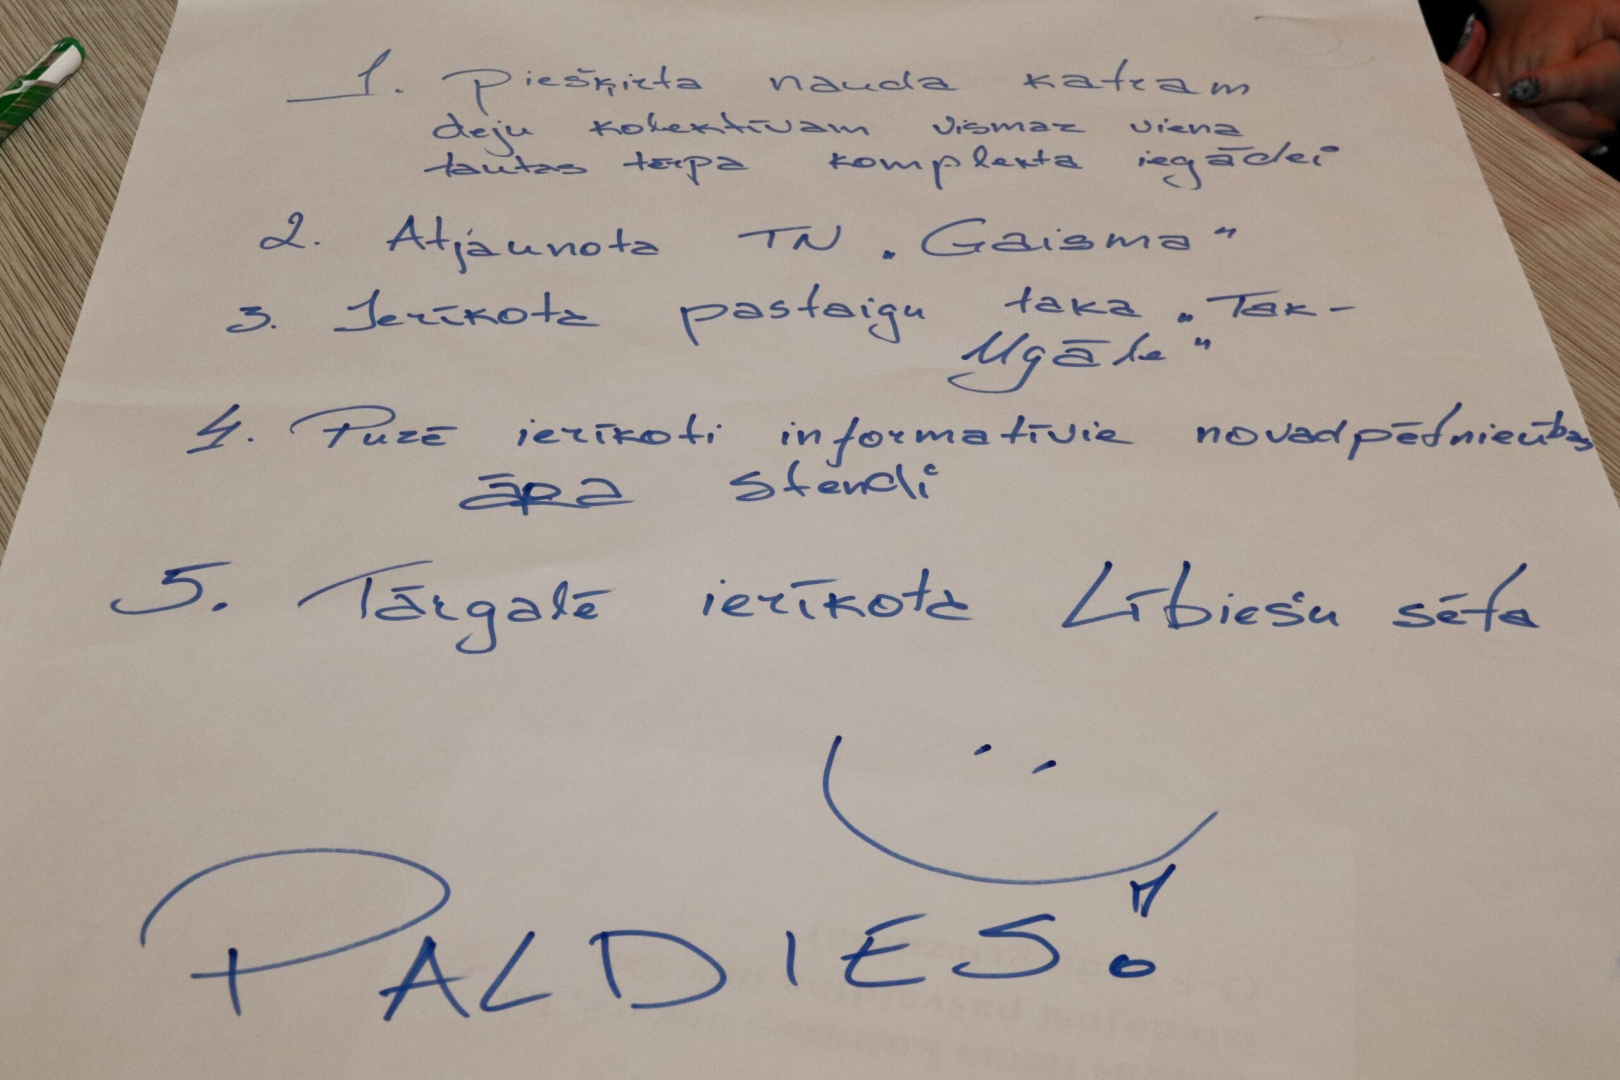 1. Piešķirta nauda katram
deju kolektīvam vismaz viena
tautas tērpa komplekta iegādei
2. Atjaunota TN „Gaisma"
3. Ierīkota pastaigu taka „Tak-
Ugāle"
4. Puzē ierīkoti informatīvie novadpētniecības
āra stendi
5. Tārgalē ierīkota Lībiešu sēta
PALDIES!